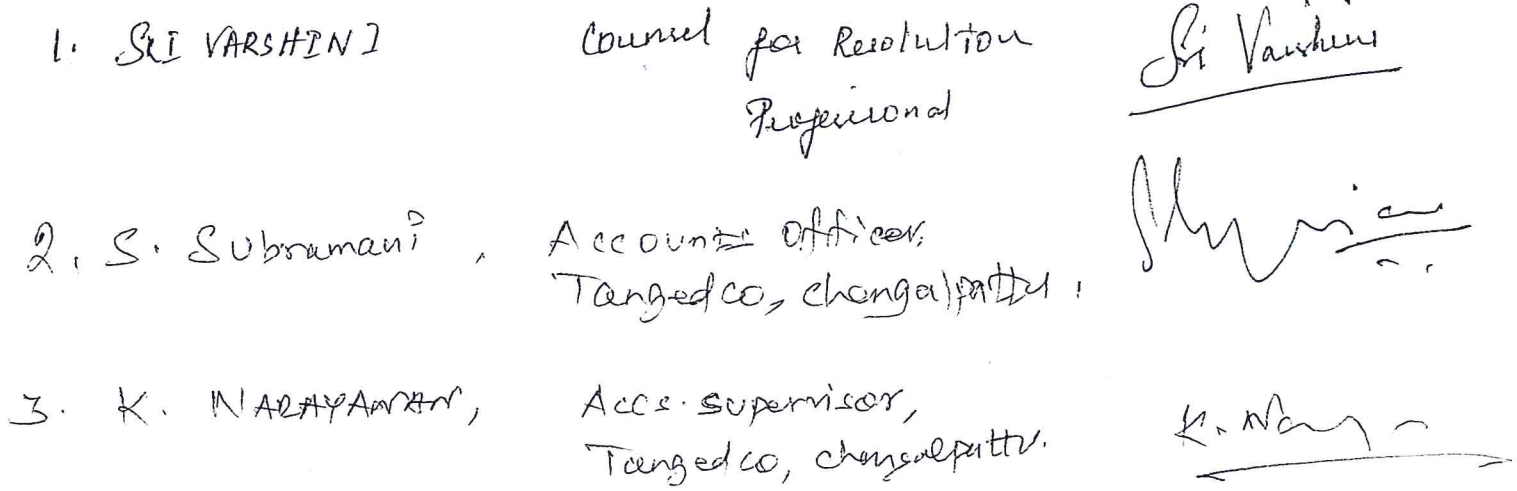 1. SRI VARSHINI Counsel for Resolution Sri Varshini
Professional
2. S. Subramani, Accounts Officer,
Tangedco, Chengalpattu.
3. K. NARAYANAN, Accs. Supervisor, K. Nary
Tangedco, Chengalpattu.